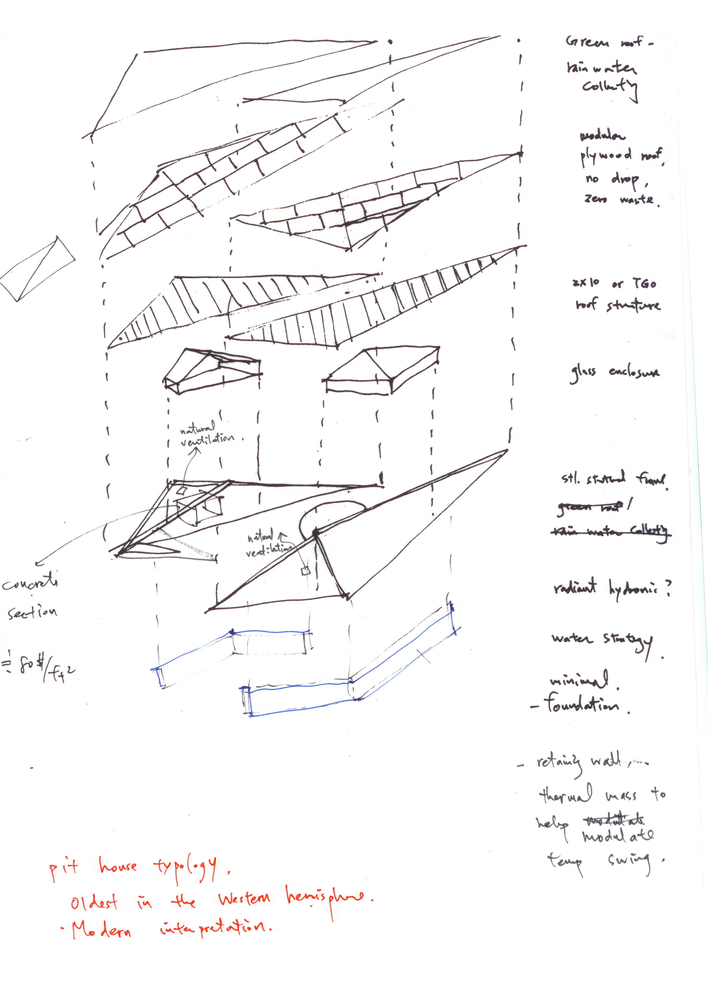 Green roof -
rain water
collectg
modular
plywood roof,
no drop,
zero waste.
2x10 or TGO
roof structure
glass enclosure
natural
ventilation.
stl. structural frame.
green roof /
rain water collectg
natural
ventilation
concrete
section
radiant hydronic?
≐ 80 $/ft2
water strategy.
minimal.
- foundation.
- retaing wall,....
thermal mass to
help modulate
modulate
temp swing.
pit house typology.
Oldest in the Western hemisphere.
- Modern interpretation.